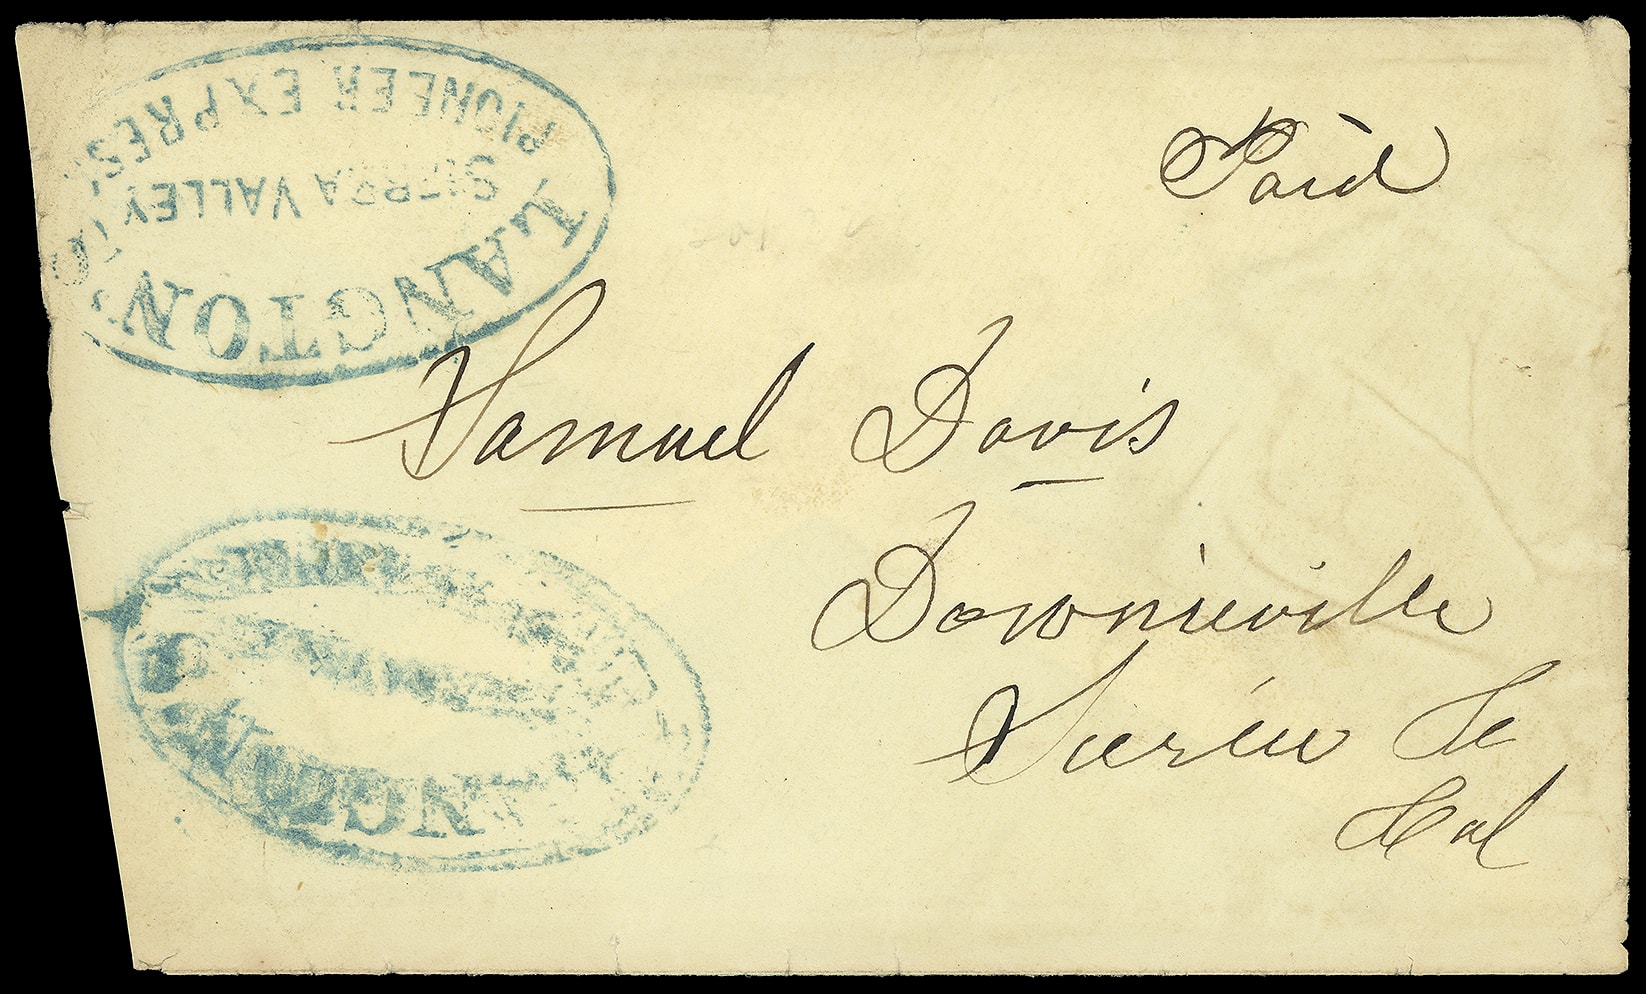 LANGTON'S
PIONEER EXPRESS
SIERRA VALLEY
Paid
Samuel Davis
Downieville
Sierra Co
Cal
LANGTON